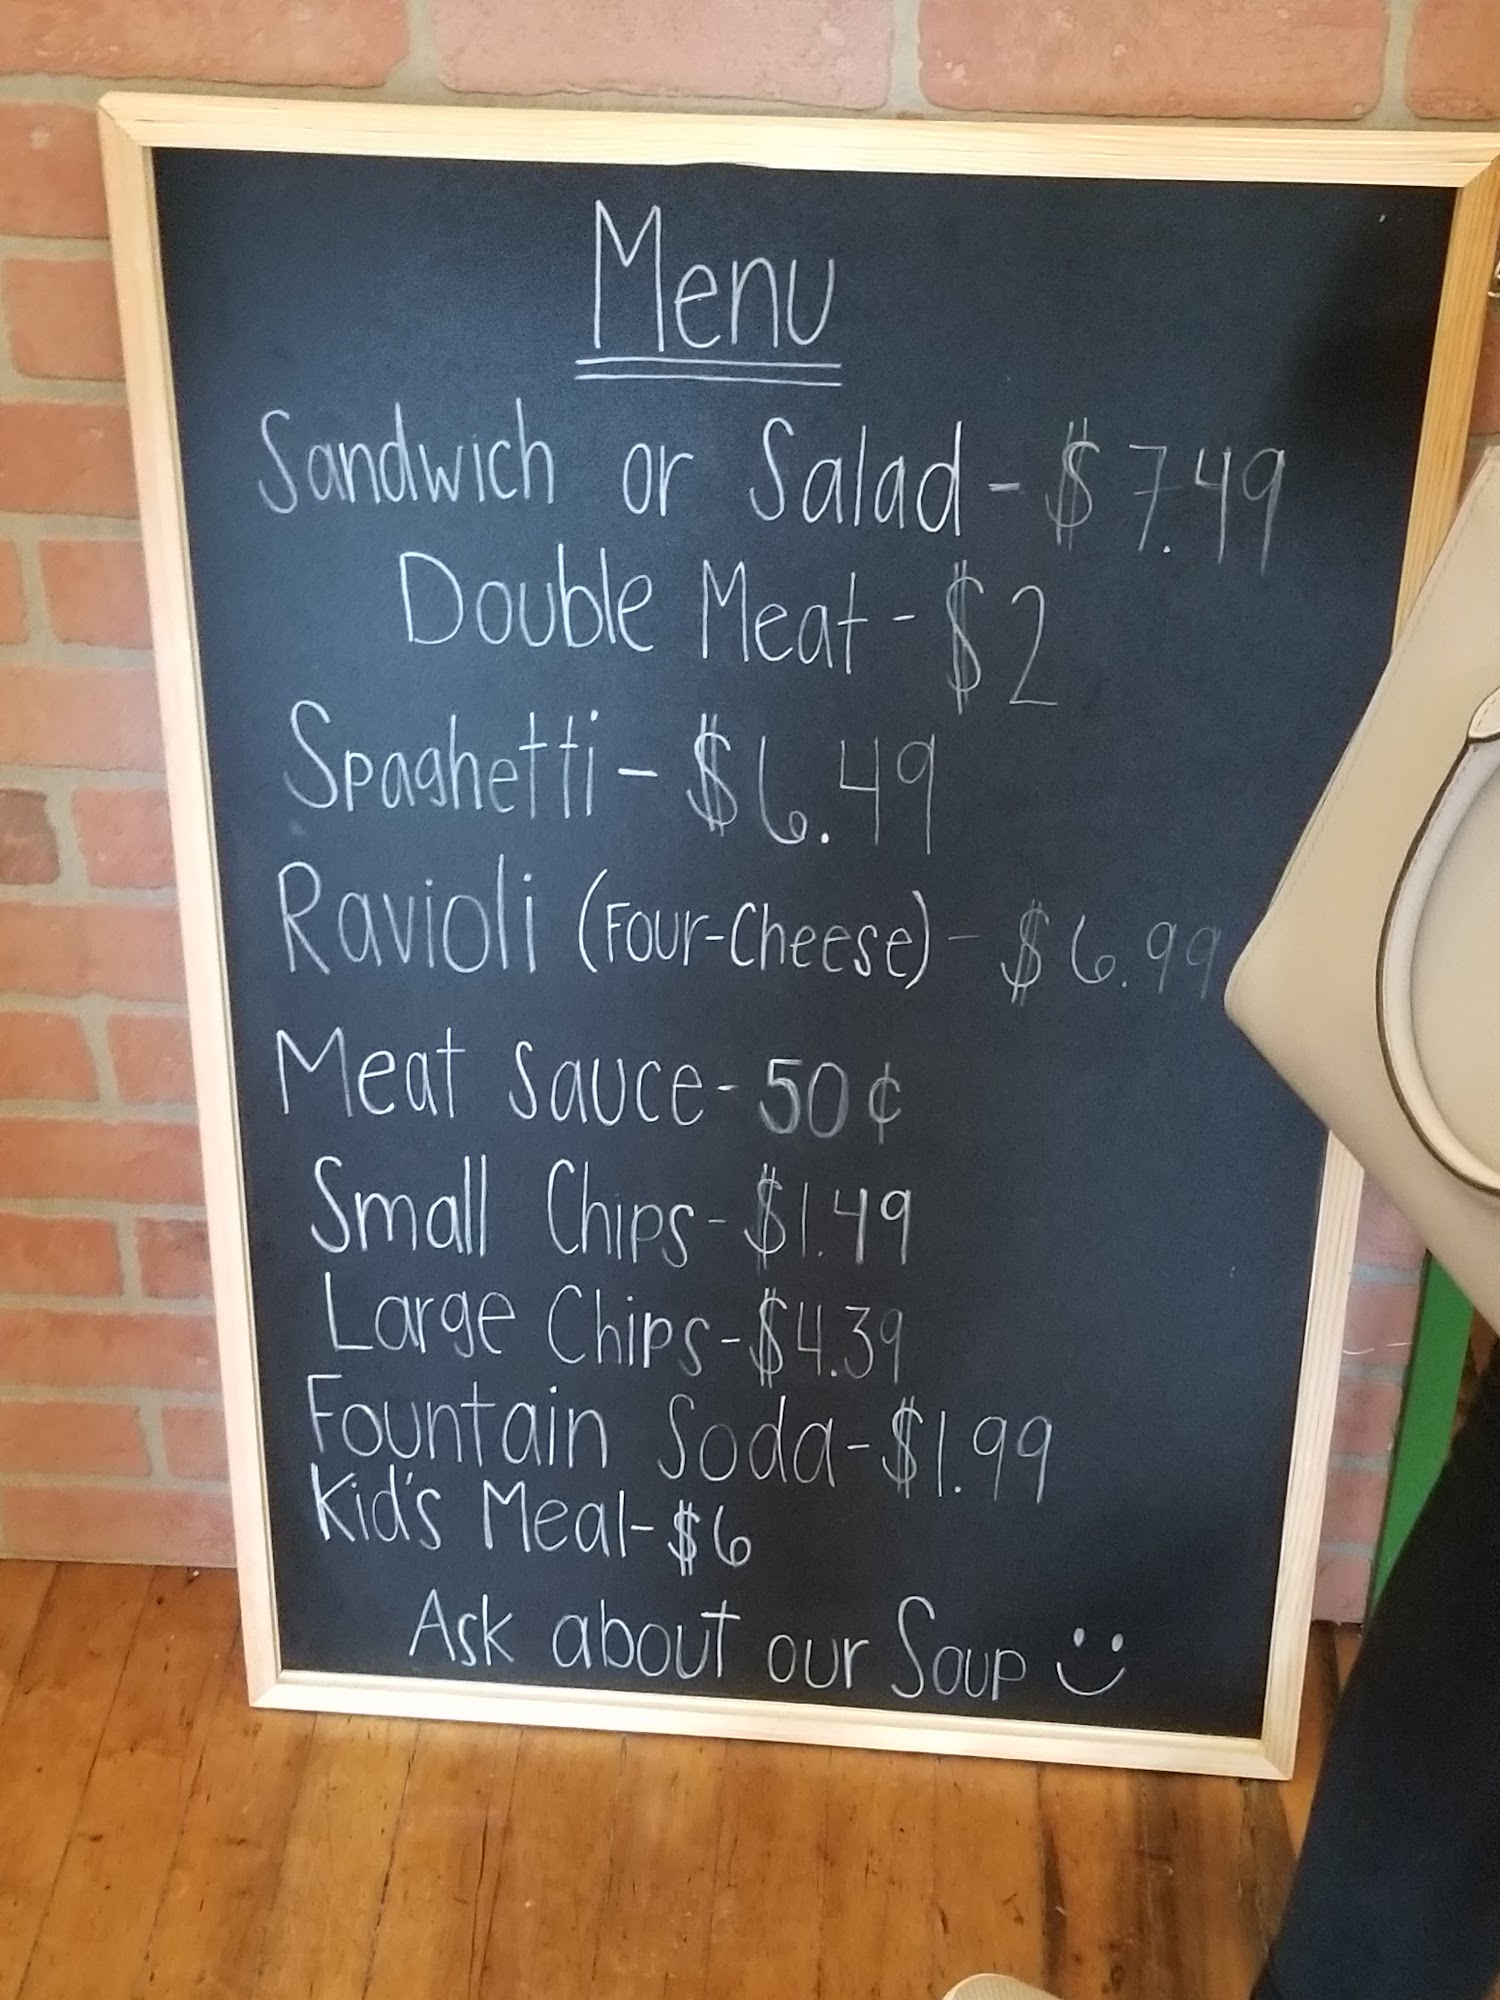 Menu
Sandwich or Salad - $7.49
Double Meat - $2
Spaghetti - $6.49
Ravioli (Four-Cheese) - $6.99
Meat Sauce - 50¢
Small Chips - $1.49
Large Chips - $4.39
Fountain Soda - $1.99
Kid's Meal - $6
Ask about our Soup